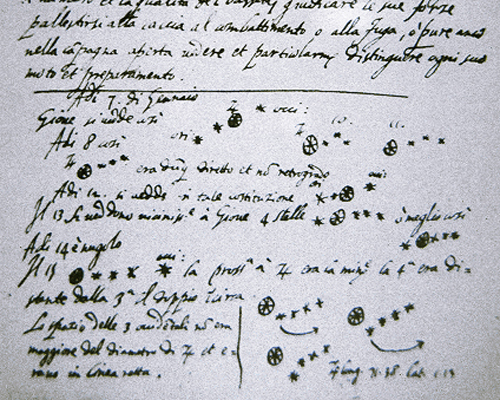 a numero et la qualità dei vasselli giudicare le sue forze
pallestirsi alla caccia al combattimento o alla fuga, o pure anco
nella capagna aperta vedere et particolarmᵉ distinguere ogni suo
moto et preparamento.
Adi 7. di Gennaio
Gione si vedde così ♃ * * occi:
Adi 8 così ori: 10. 11.
♃ era dūq diretto et nō retrogrado
Adi 12. si vedde in tale costituzione ori occi:
Il 13 si veddono vicinissᵉ à Giove 4 stelle ò meglio così
Adi 14 è nugolo
Il 15 occi: la prossᵃ à ♃ era la minᵉ la 4ᵃ era di=
stante dalla 3ᵃ il doppio incirca
Lo spazio delle 3 occidētali nō era
maggiore del diametro di ♃ et e=
rano in linea retta.
♃ long. 71.38. lat. 1.13